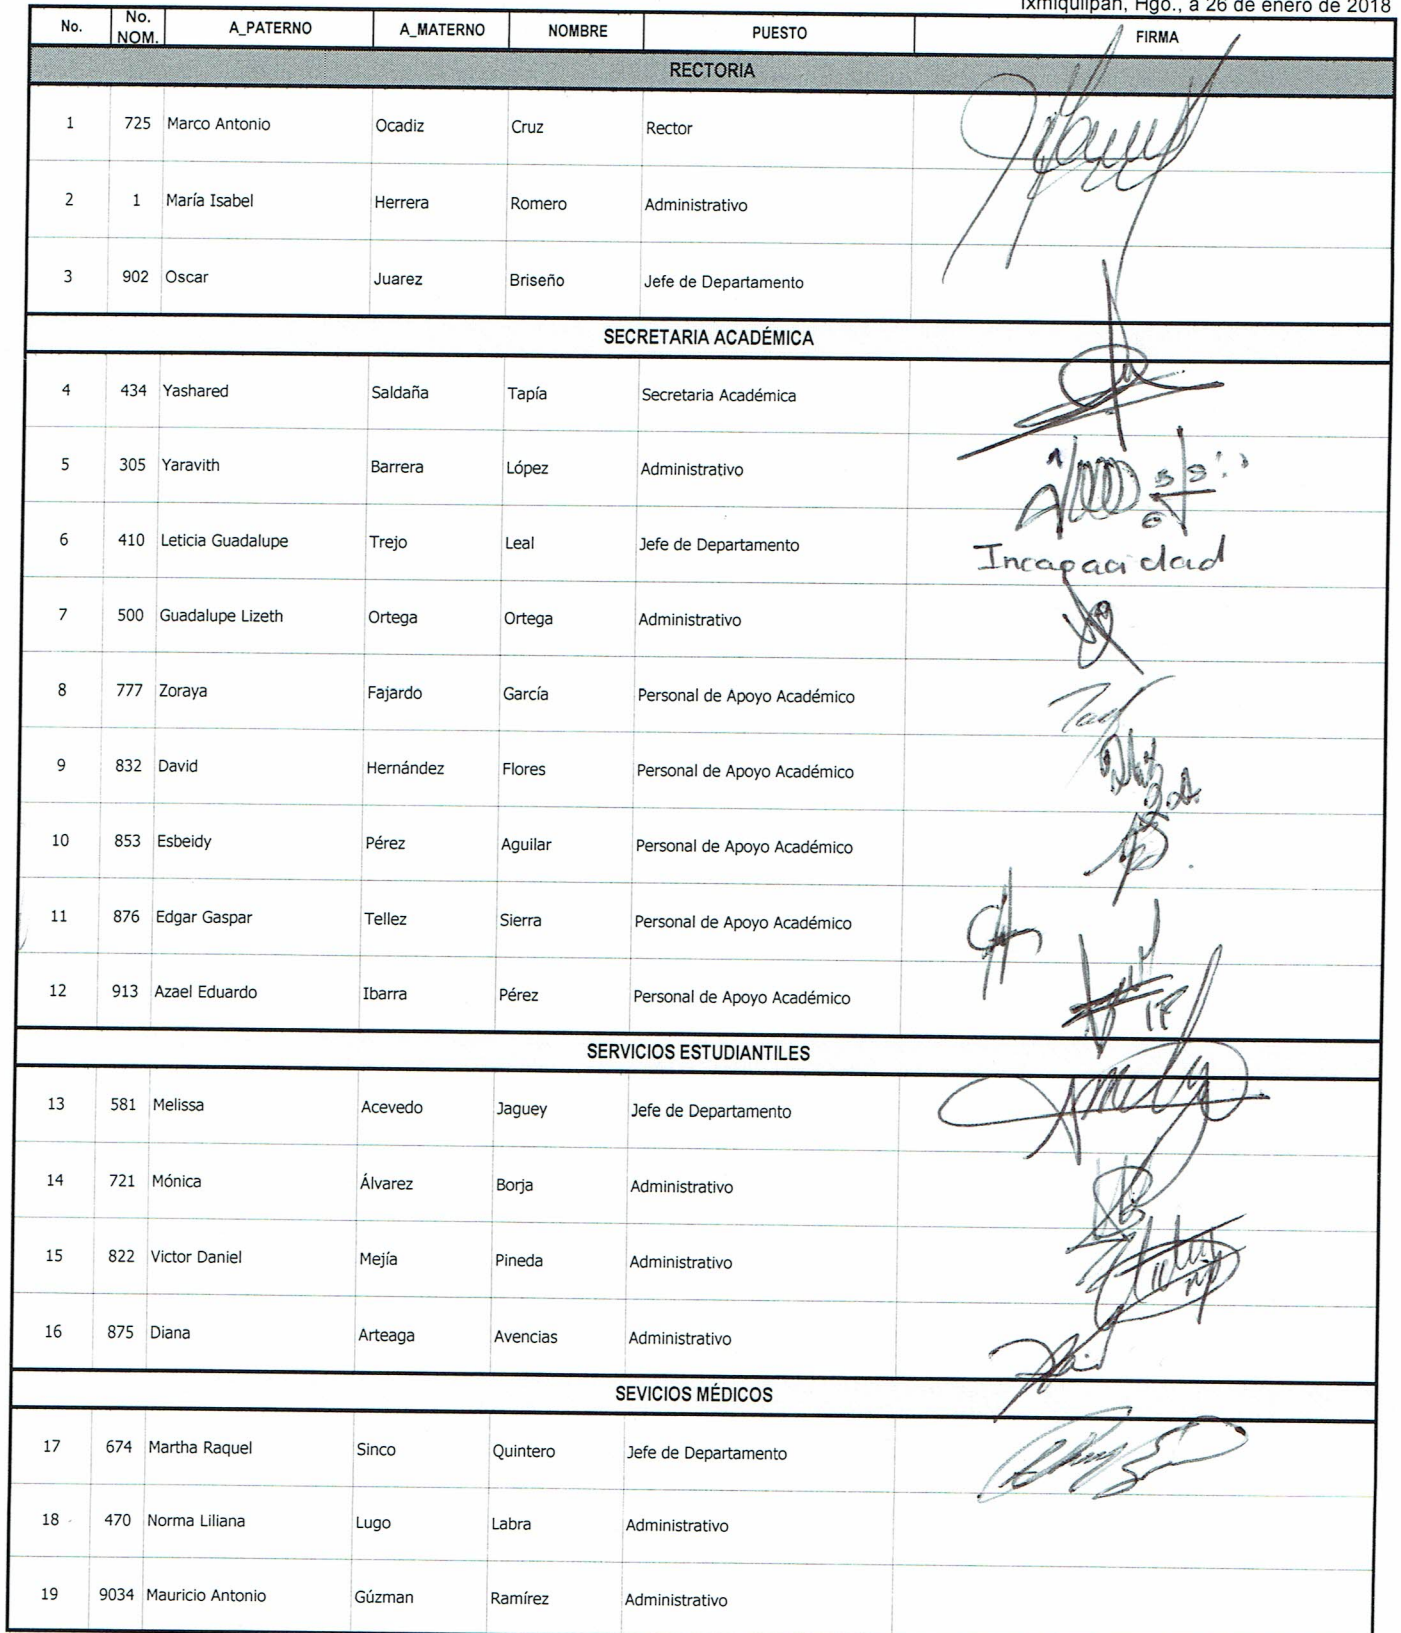 Ixmiquilpan, Hgo., a 26 de enero de 2018
No. No. NOM. A_PATERNO A_MATERNO NOMBRE PUESTO FIRMA
RECTORIA
1 725 Marco Antonio Ocadiz Cruz Rector
2 1 María Isabel Herrera Romero Administrativo
3 902 Oscar Juarez Briseño Jefe de Departamento
SECRETARIA ACADÉMICA
4 434 Yashared Saldaña Tapía Secretaria Académica
5 305 Yaravith Barrera López Administrativo
6 410 Leticia Guadalupe Trejo Leal Jefe de Departamento Incapacidad
7 500 Guadalupe Lizeth Ortega Ortega Administrativo
8 777 Zoraya Fajardo García Personal de Apoyo Académico
9 832 David Hernández Flores Personal de Apoyo Académico
10 853 Esbeidy Pérez Aguilar Personal de Apoyo Académico
11 876 Edgar Gaspar Tellez Sierra Personal de Apoyo Académico
12 913 Azael Eduardo Ibarra Pérez Personal de Apoyo Académico
SERVICIOS ESTUDIANTILES
13 581 Melissa Acevedo Jaguey Jefe de Departamento
14 721 Mónica Álvarez Borja Administrativo
15 822 Victor Daniel Mejía Pineda Administrativo
16 875 Diana Arteaga Avencias Administrativo
SEVICIOS MÉDICOS
17 674 Martha Raquel Sinco Quintero Jefe de Departamento
18 470 Norma Liliana Lugo Labra Administrativo
19 9034 Mauricio Antonio Gúzman Ramírez Administrativo